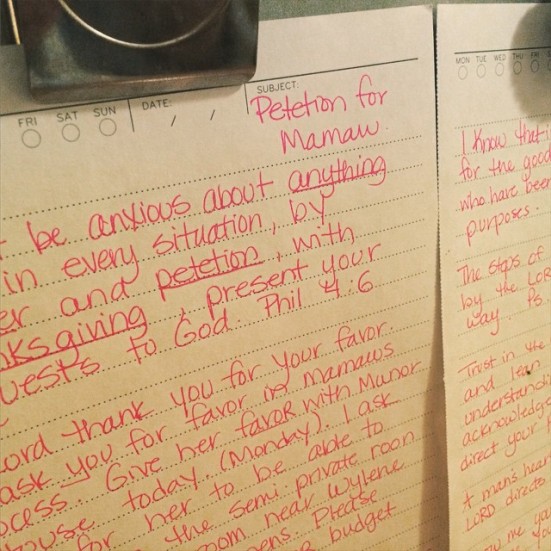 FRI SAT SUN DATE: / / SUBJECT:
Petetion for
Mamaw.
be anxious about anything
in every situation, by
er and petetion, with
nksgiving, present your
uests to God. Phil 4:6
ord thank you for your favor.
ask you for favor in mamaws
ocess. Give her favor with Manor
ouse today. (Monday). I ask
for her to be able to
the semi private room
oom near Wylene
pens. Please
budget
MON TUE WED THU FRI
I know that
for the good
who have been
purposes.
The steps of
by the LOR
way. Ps.
Trust in the
and lean
understandi
acknowledg
direct your
A man's hear
LORD directs
me